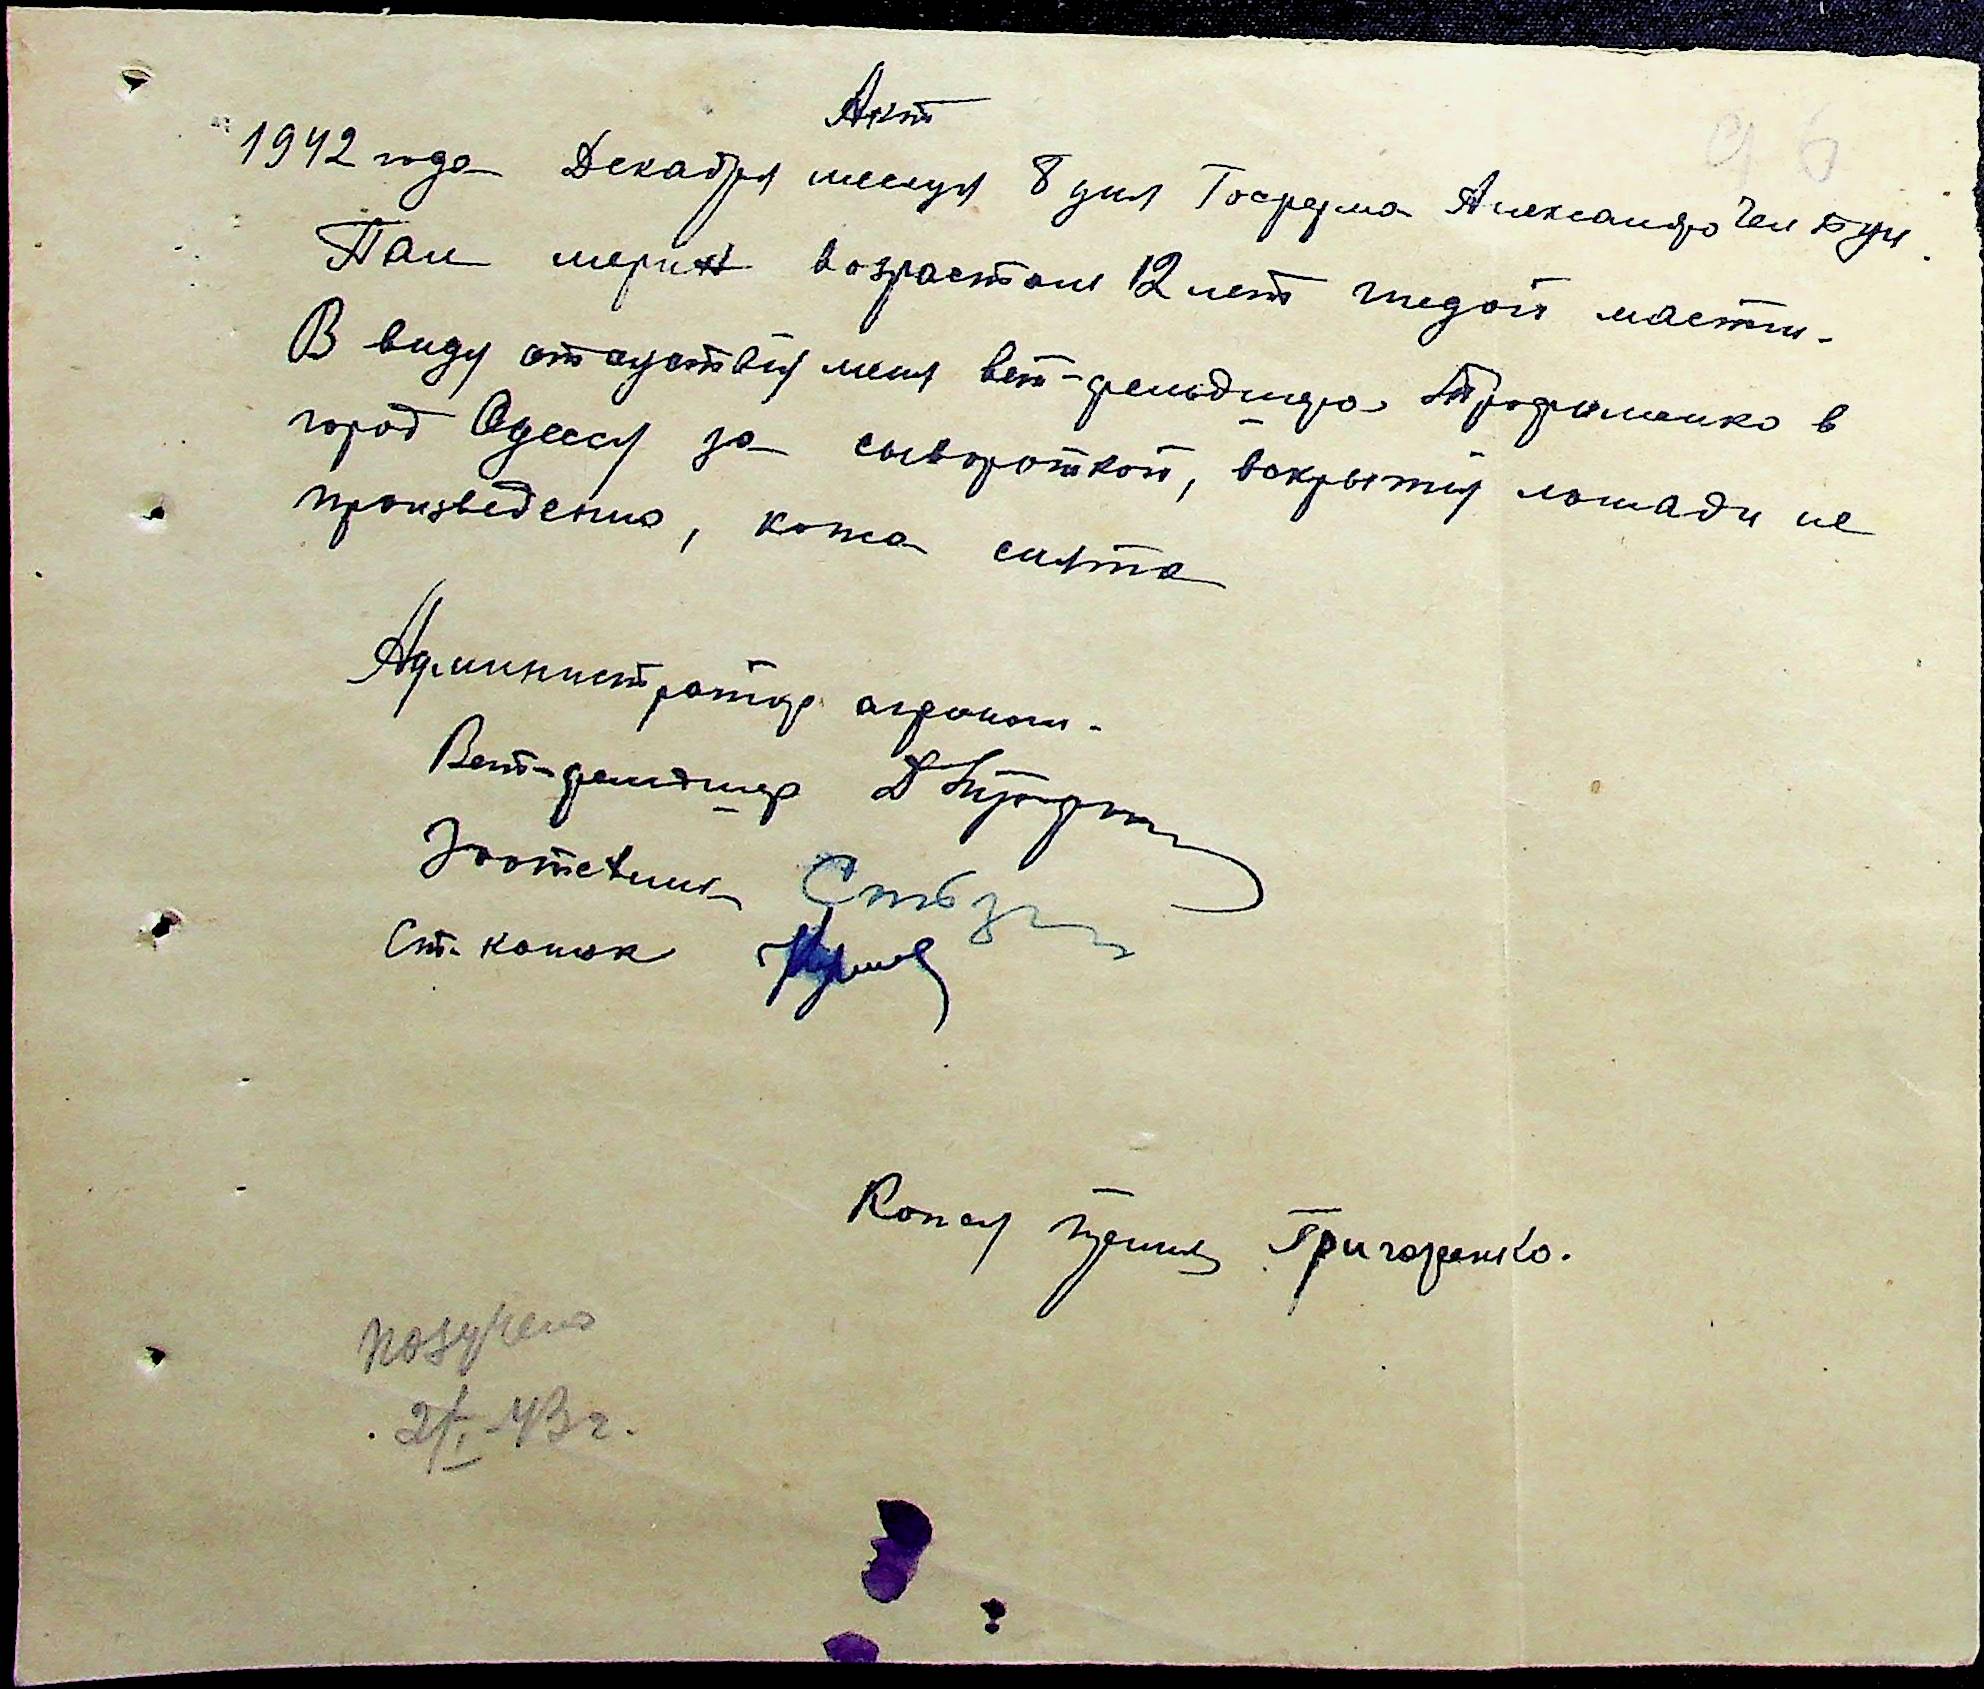 Акт
1942 года Декабря месяца 8 дня Госферма Александро Чел Бун.
Пал мерин возрастом 12 лет гнедой масти.
В виду отсуствия меня вет-фельдшера Трофименко в
город Одессу за сывороткой, вскрытия лошади не
произведено, кожа снята
Администратор агроном.
Вет-фельдшер Д Трофим
Зоотехник
Ст. конюх
Кожу принял Григоренко.
получено
2/I-43 г.